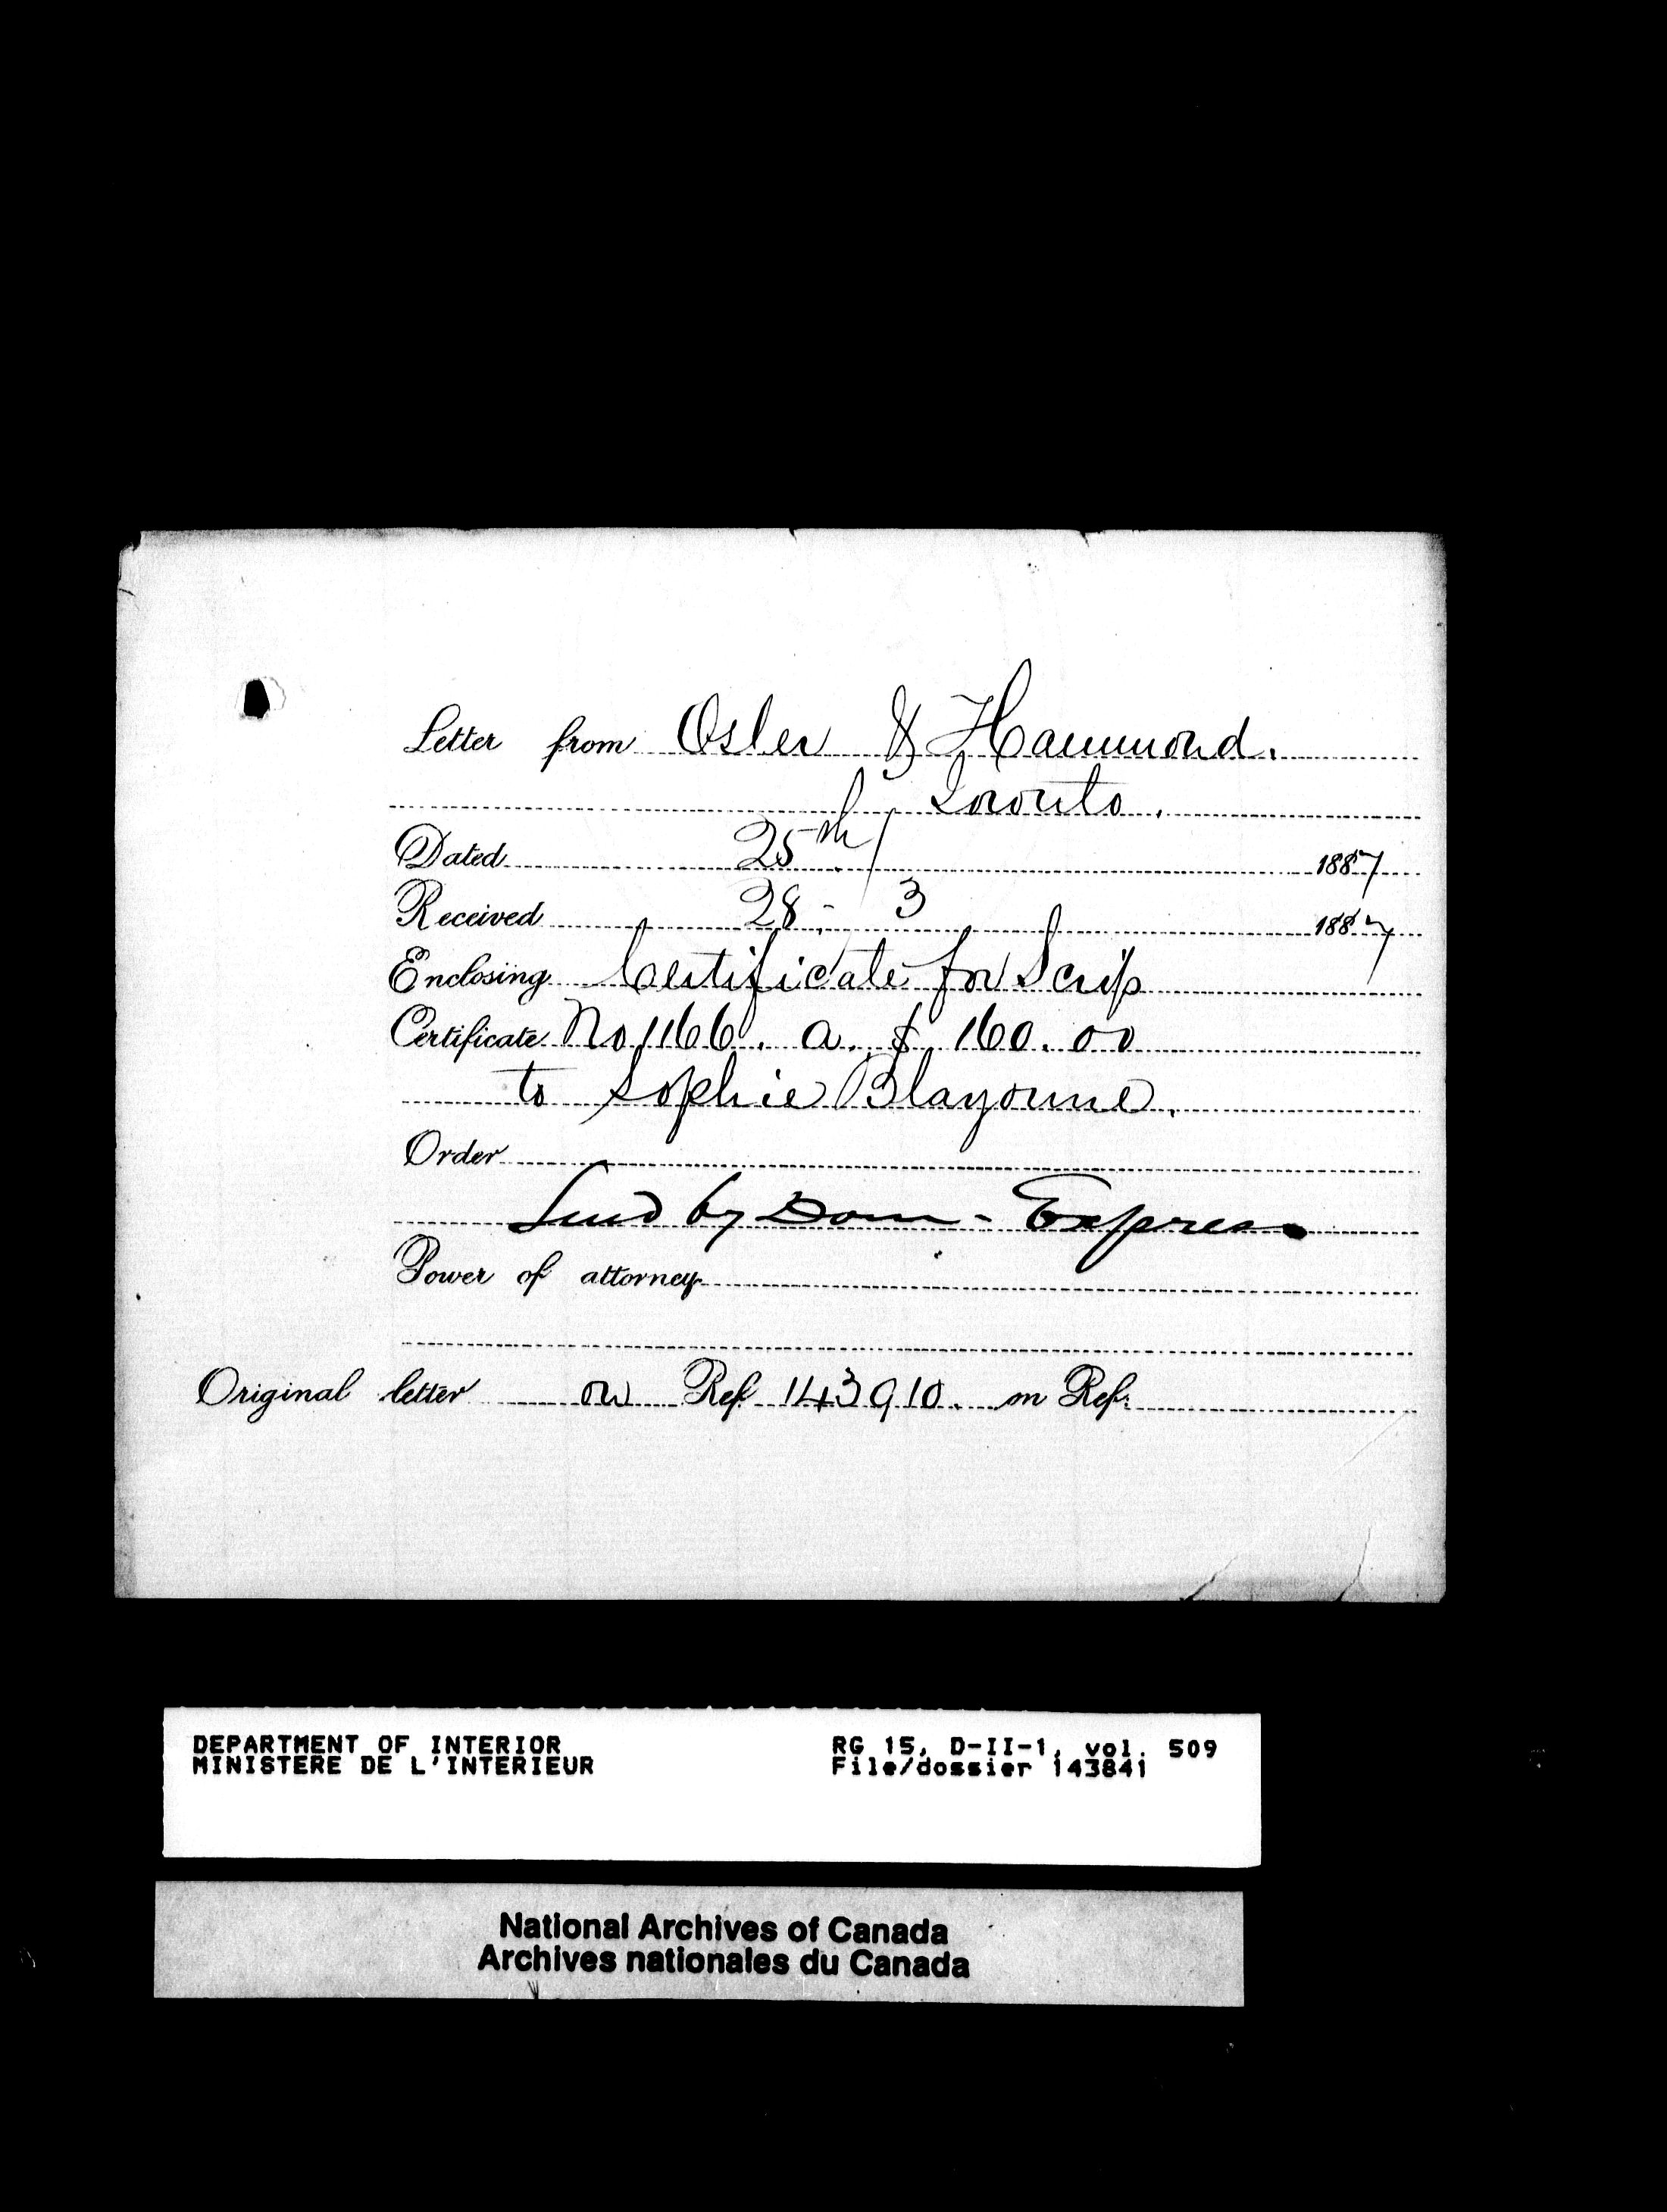 Letter from Osler & Hammond.
Toronto.
Dated 25th / 1887
Received 28 - 3 1887
Enclosing Certificate for Scrip
Certificate No 1166. a. $ 160.00
to Sophie Blayonne.
Order
Send by Dom - Express
Power of attorney
Original letter on Ref. 143910. in Ref:
DEPARTMENT OF INTERIOR
MINISTERE DE L'INTERIEUR
RG 15, D-II-1, vol. 509
File/dossier 143841
National Archives of Canada
Archives nationales du Canada